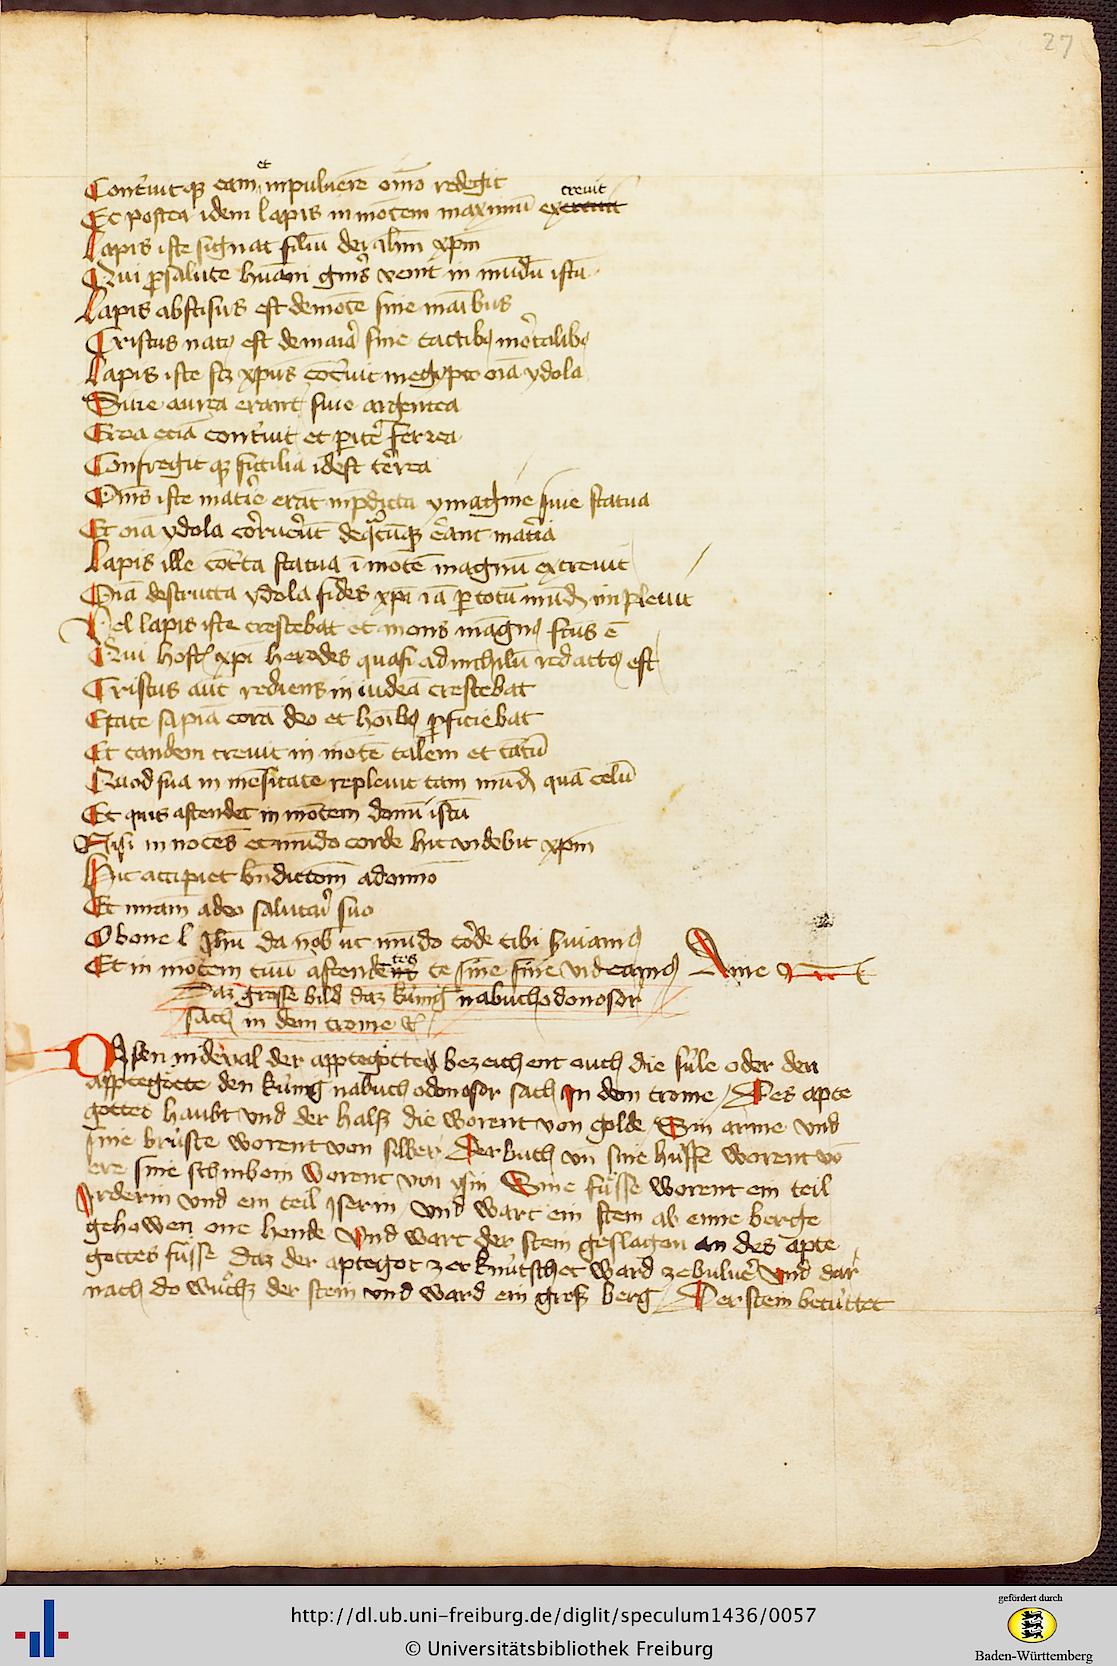 27
et
Cont'uitq3 eam inpulverē oīno redegit
crevit
Et postea idem lapis in mōtem maximū
Lapis iste signat filiū dei ihm xpm
Qui p salute hūani gn̄is venit in mūdū istū
Lapis abscisus est de mōte sine māibus
Cristus nat9 est de maria sine tactib9 mōtalib9
Lapis iste scz xpūs cōt'uit in egypto oīa ydola
Sive aurea erant sive argentea
Erea eciā cont'uit et pit' ferrea
Confregitq3 fictilia id est t'rea
Om̄s iste mat'ie erāt in p̄dicta ymagine sive statua
Et oīa ydola cōrueŕut de q̄cūq3 ēant mat'ia
Lapis ille cōt'ta statua ī mōtē magnū excrevit
Oīa destructa ydola fides xpi iā p totū mūdū inplevit
Vel lapis iste crescebat et mons magn9 fcūs ē
Qui hostꝭ xpi herodes quasi ad nichilū redact9 est
Cristus aūt rediens in iudeā crescebat
Etate sapīa corā deo et hoīb9 p̄ficiebat
Et tandem crevit in mōtē talem et tātū
Quod sua in mēsitate replevit tam mūdū quā celū
Et quis ascendet in mōtem domī istū
Nisi in nocēs et mūdo corde hic videbit xpm
Hic accipiet bn̄dictōm̄ a domīo
Et mīam a deo salutari suo
O bone Ihū da nob ut mūdo cōde tibi ƿviam9
tes
Et in mōtem tuū ascenden te sine fine videam9 Ame
Daz grosse bild daz kúnig nabuchodonosor
sach in dem trome
Disen nideval der apptegötten bezeichent ouch die súle oder der
apptegötte den kúnig nabuchodonosor sach In den trome / Des apte
gottes haubt vnd der halß die worent von golde Sin arme vnd
sine brúste worent von silber Der buch vn̄ sine húffe worent vō
ere sine schinbein worent von ysin Sine füsse worent ein teil
Irderin vnd ein teil Iserin / vnd wart ein stein ab eime berge
gehowen one hende Vnd wart der stein geslagen an des apte
gottes füsse daz der aptegot zerknútschet ward ze buluer Vnd dar
nach do wuchß der stein vnd ward ein groß berg / Der stein betúttet
http://dl.ub.uni-freiburg.de/diglit/speculum1436/0057
© Universitätsbibliothek Freiburg
gefördert durch
Baden-Württemberg